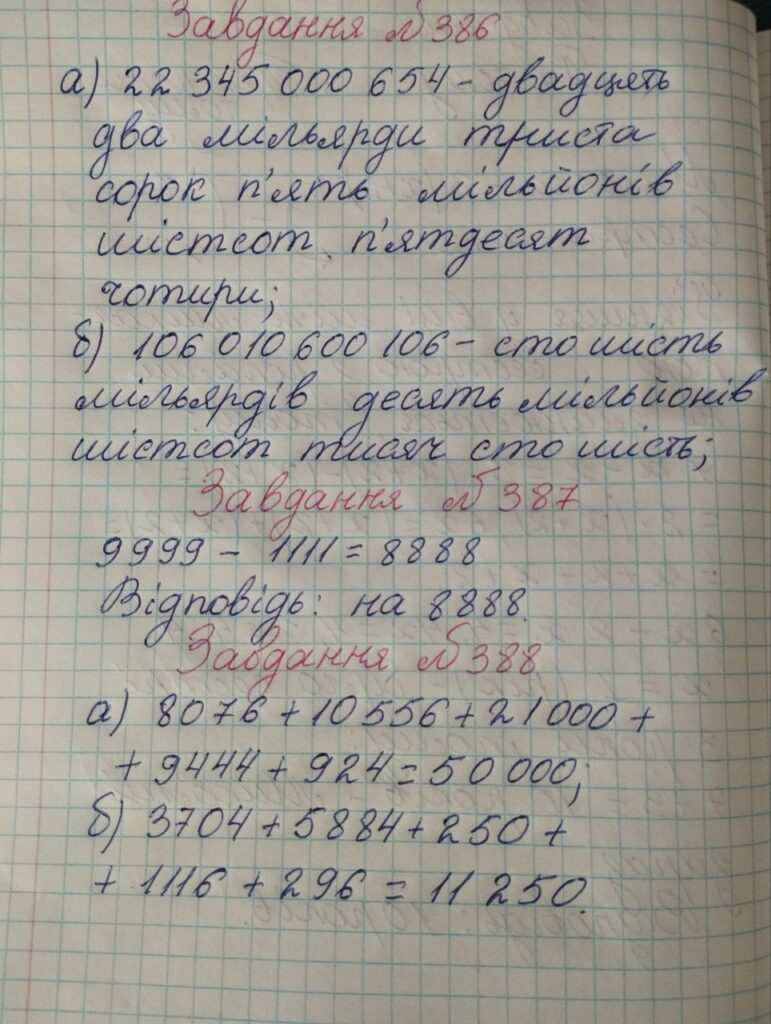 Завдання №386
а) 22 345 000 654 – двадцять
два мільярди триста
сорок п'ять мільйонів
шістсот п'ятдесят
чотири;
б) 106 010 600 106 – сто шість
мільярдів десять мільйонів
шістсот тисяч сто шість;
Завдання №387
9999 – 1111 = 8888
Відповідь: на 8888.
Завдання №388
а) 8076 + 10 556 + 21 000 +
+ 9444 + 924 = 50 000;
б) 3704 + 5884 + 250 +
+ 1116 + 296 = 11 250.